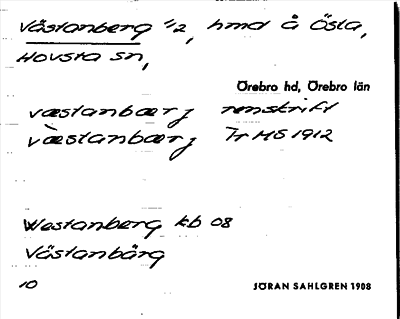 Västanberg 1/2, hmd å Ösla,
Hovsta sn,
Örebro hd, Örebro län
væstanbærj renskrift
væ̀stanbærj Ir MS 1912
Westanberg kb 08
Västanbärg
10
JÖRAN SAHLGREN 1908